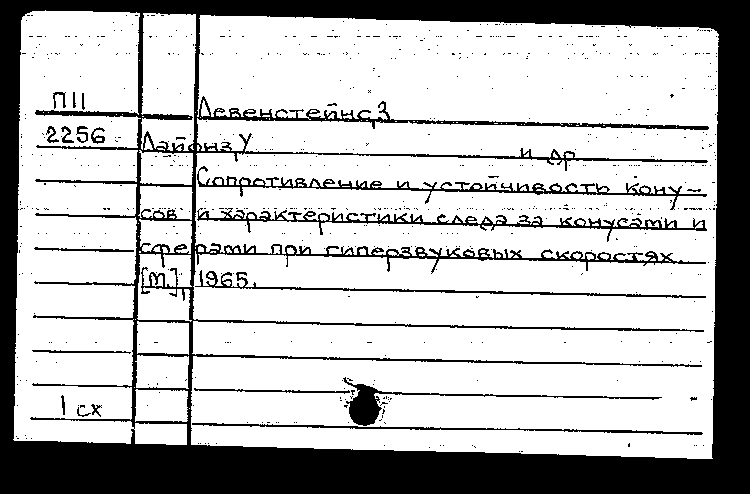 П11
Левенстейнс,З
2256
Лайонз,У и др
Сопротивление и устойчивость кону-
сов и характеристики следа за конусами и
сферами при гиперзвуковых скоростях.
[М.], 1965.
1 сх